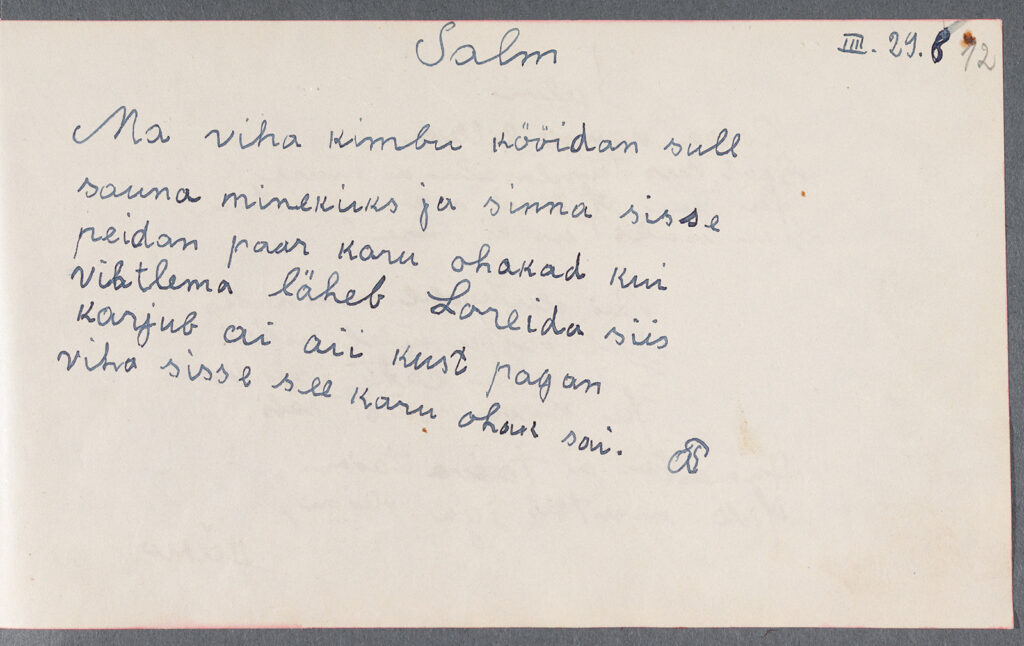 Salm
III. 29. 8 12
Ma viha kimbu kööidan sull
sauna minekuks ja sinna sisse
peidan paar karu ohakad kui
vihtlema läheb Loreida siis
karjub ai aii kust pagan
viha sisse see karu ohak sai.